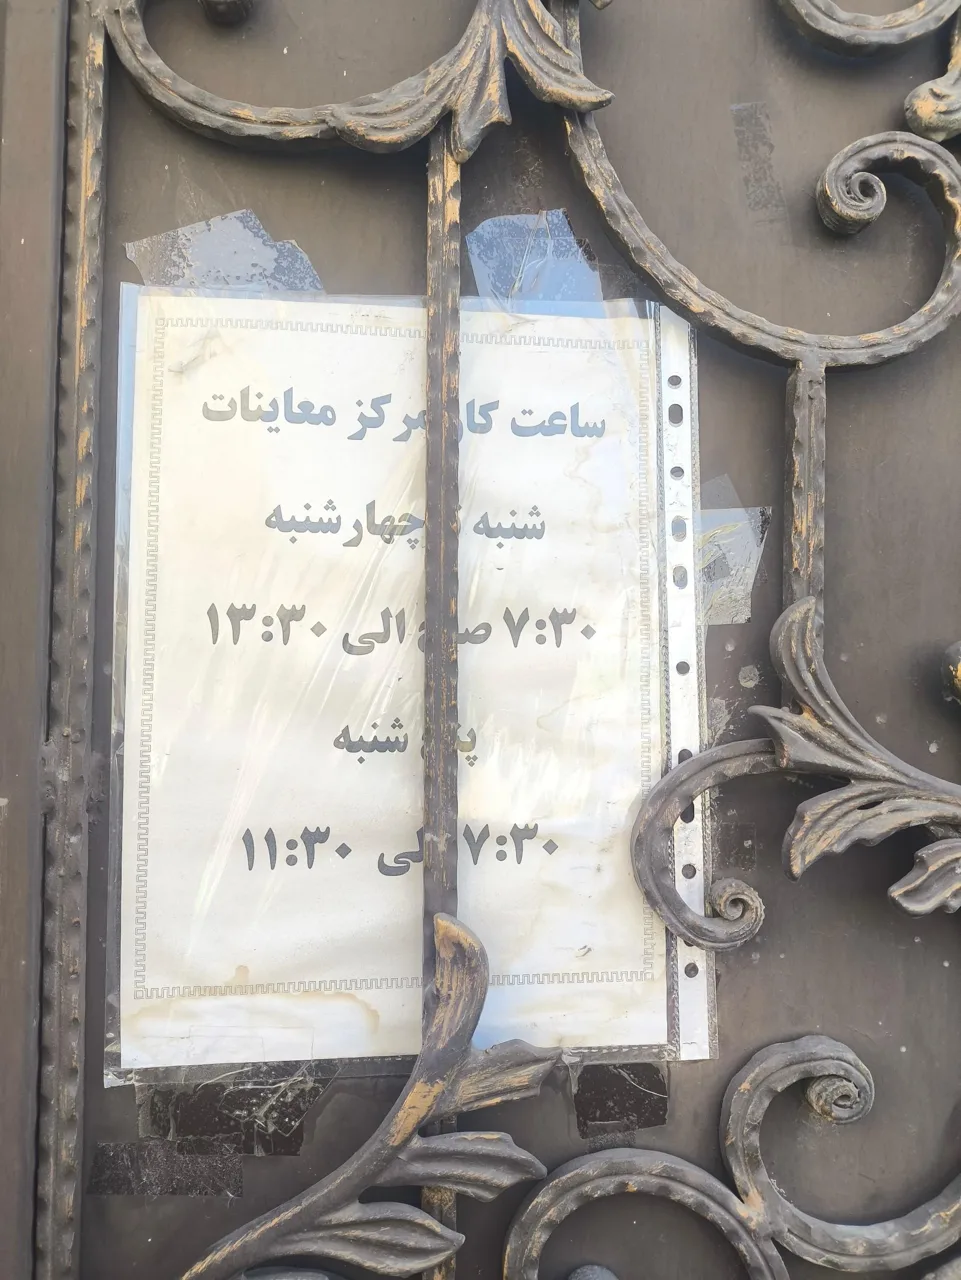 ساعت کار مرکز معاینات
شنبه تا چهارشنبه
۷:۳۰ صبح الی ۱۳:۳۰
پنج شنبه
۷:۳۰ الی ۱۱:۳۰